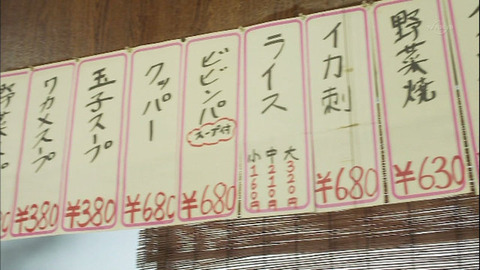 野菜焼
¥630
イカ刺
¥680
ライス
大 320円
中 210円
小 160円
ビビンパ
スープ付
¥680
クッパー
¥680
玉子スープ
¥380
ワカメスープ
¥380
野菜スープ